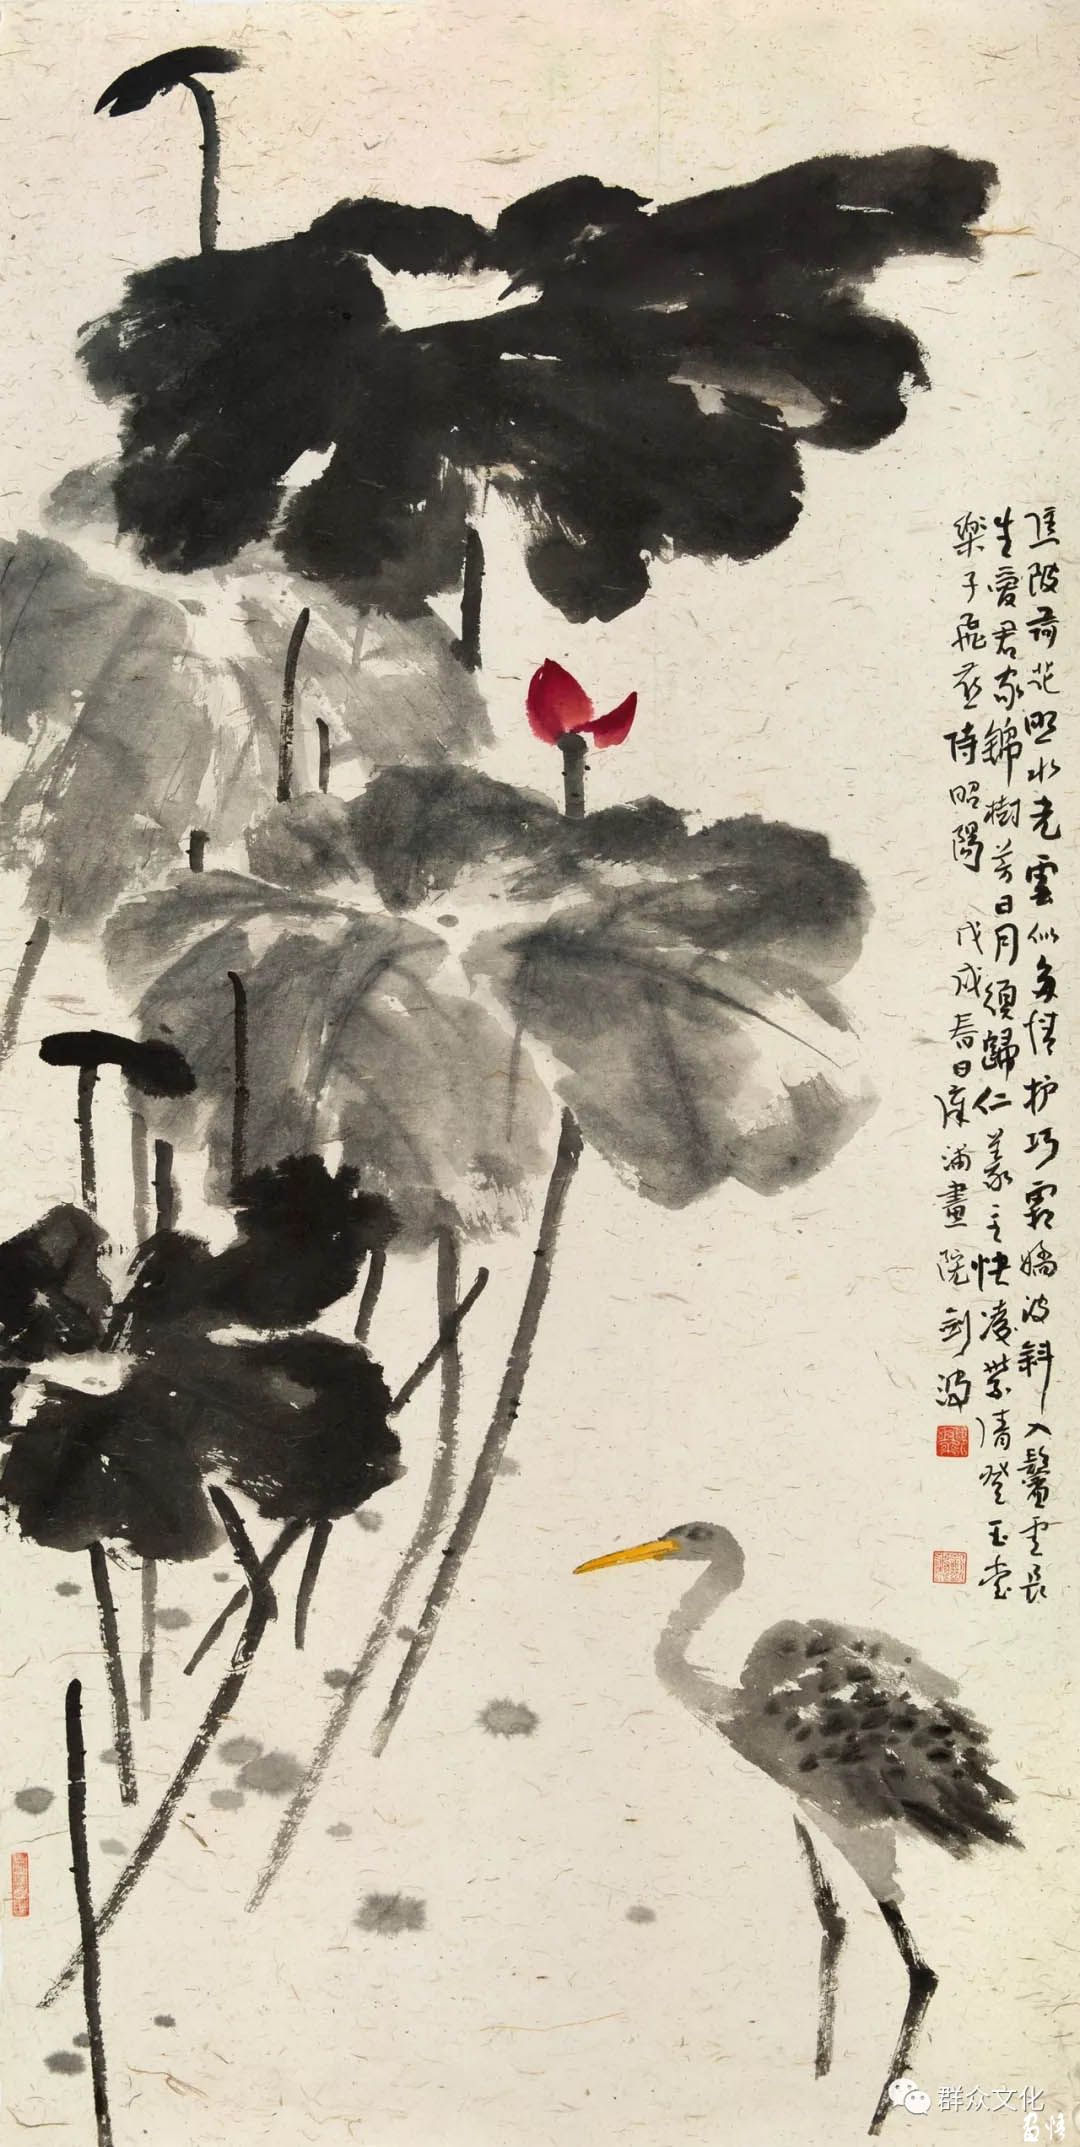 陂荷花照水光雲似多情护巧霜嬌波斜入鬢雲長
生愛君家錦樹芳日月須歸仁義主快凌紫清登玉堂
樂子飛燕侍昭陽 戊戌春日漳浦畫院剑波
群众文化